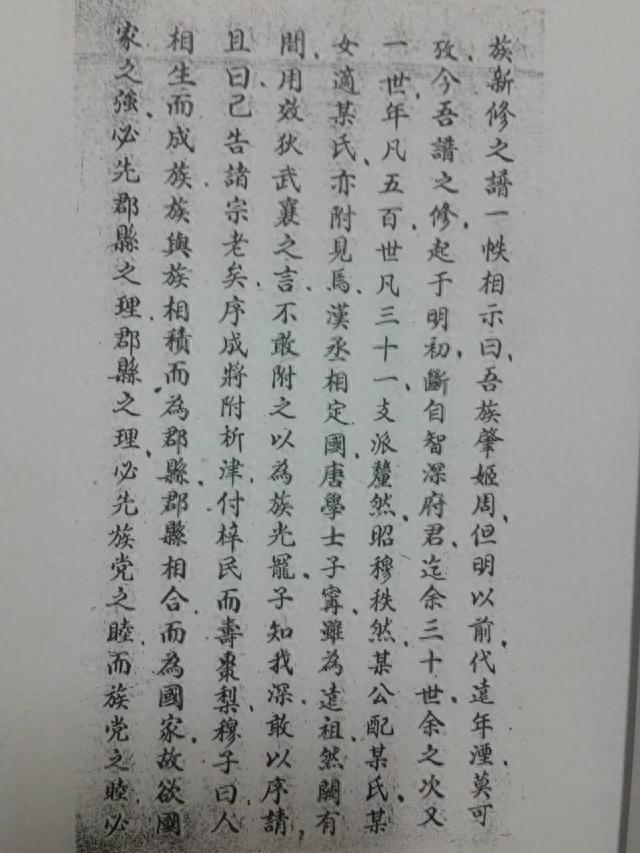 族新修之譜一帙相示曰、吾族肇姬周、但明以前、代遠年湮、莫可
攷、今吾譜之修、起于明初、斷自智深府君、迄余三十世、余之次又
一世、年凡五百、世凡三十一、支派釐然、昭穆秩然、某公配某氏、某
女適某氏、亦附見焉、漢丞相定國、唐學士子甯、雖為遠祖、然闕有
間、用效狄武襄之言、不敢附之以為族光寵、子知我深、敢以序請、
且曰已告諸宗老矣、序成將附析津、付梓民而壽棗梨、穆子曰、人
相生而成族、族與族相積而為郡縣、郡縣相合而為國家、故欲國
家之強、必先郡縣之理、郡縣之理、必先族党之睦、而族党之睦、必